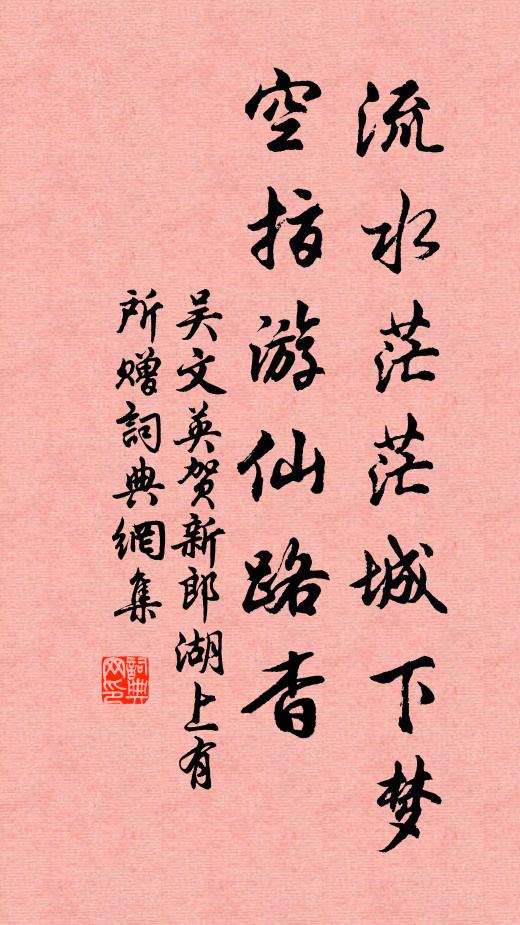 流水茫茫城下梦
空指游仙路杳
吴文英贺新郎湖上有
所赠詞典網集
詞典网印